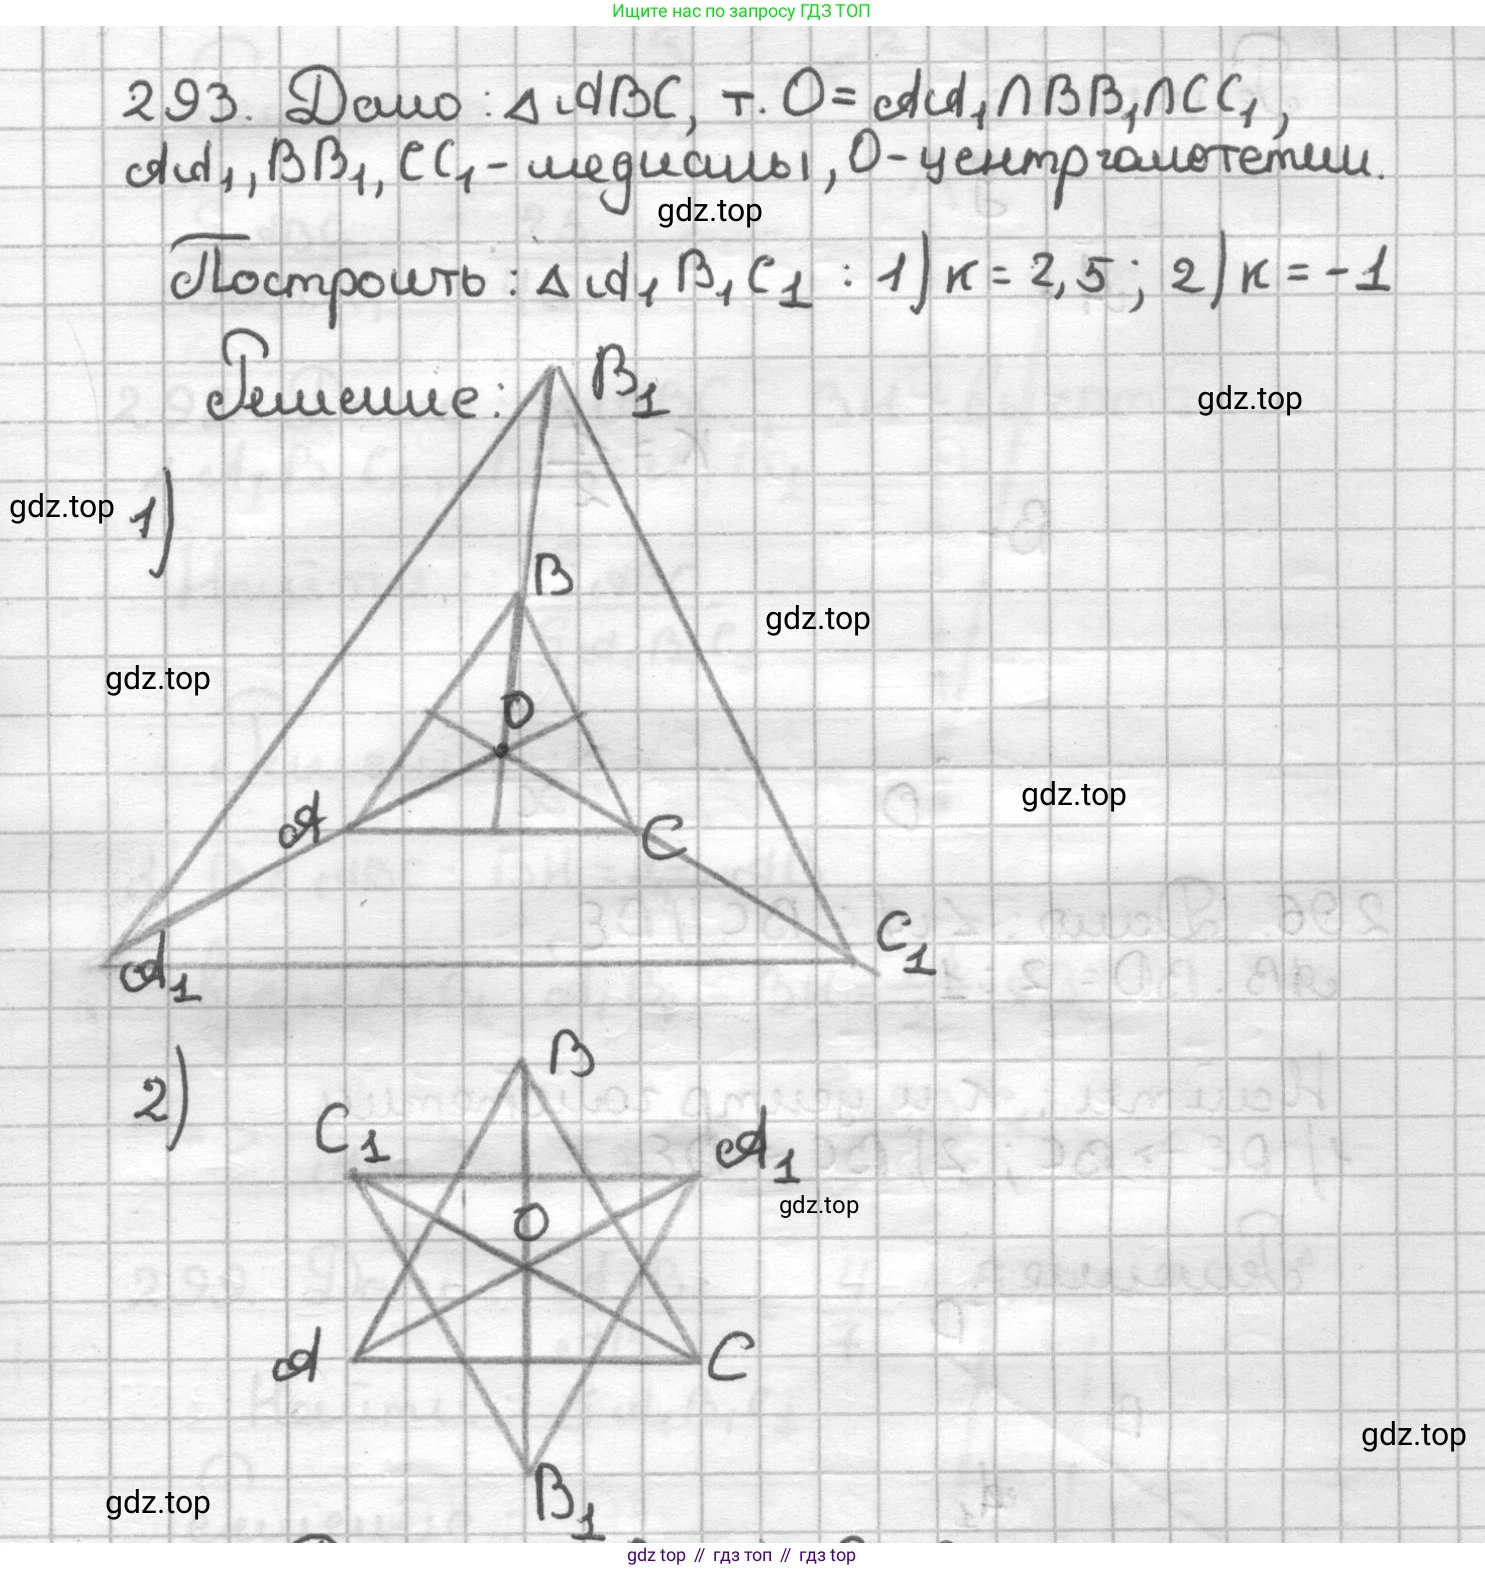 Ищите нас по запросу ГДЗ ТОП
293. Дано: △ABC, т. O = AA₁∩BB₁∩CC₁,
AA₁, BB₁, CC₁ - медианы, O - центр гомотетии.
gdz.top
Построить: △A₁B₁C₁ : 1) к = 2,5; 2) к = -1
Решение:
B₁
gdz.top
gdz.top
1)
B
gdz.top
gdz.top
O
gdz.top
A
C
C₁
A₁
2)
B
C₁
A₁
gdz.top
O
A
C
gdz.top
B₁
gdz.top
gdz top // гдз топ // гдз top